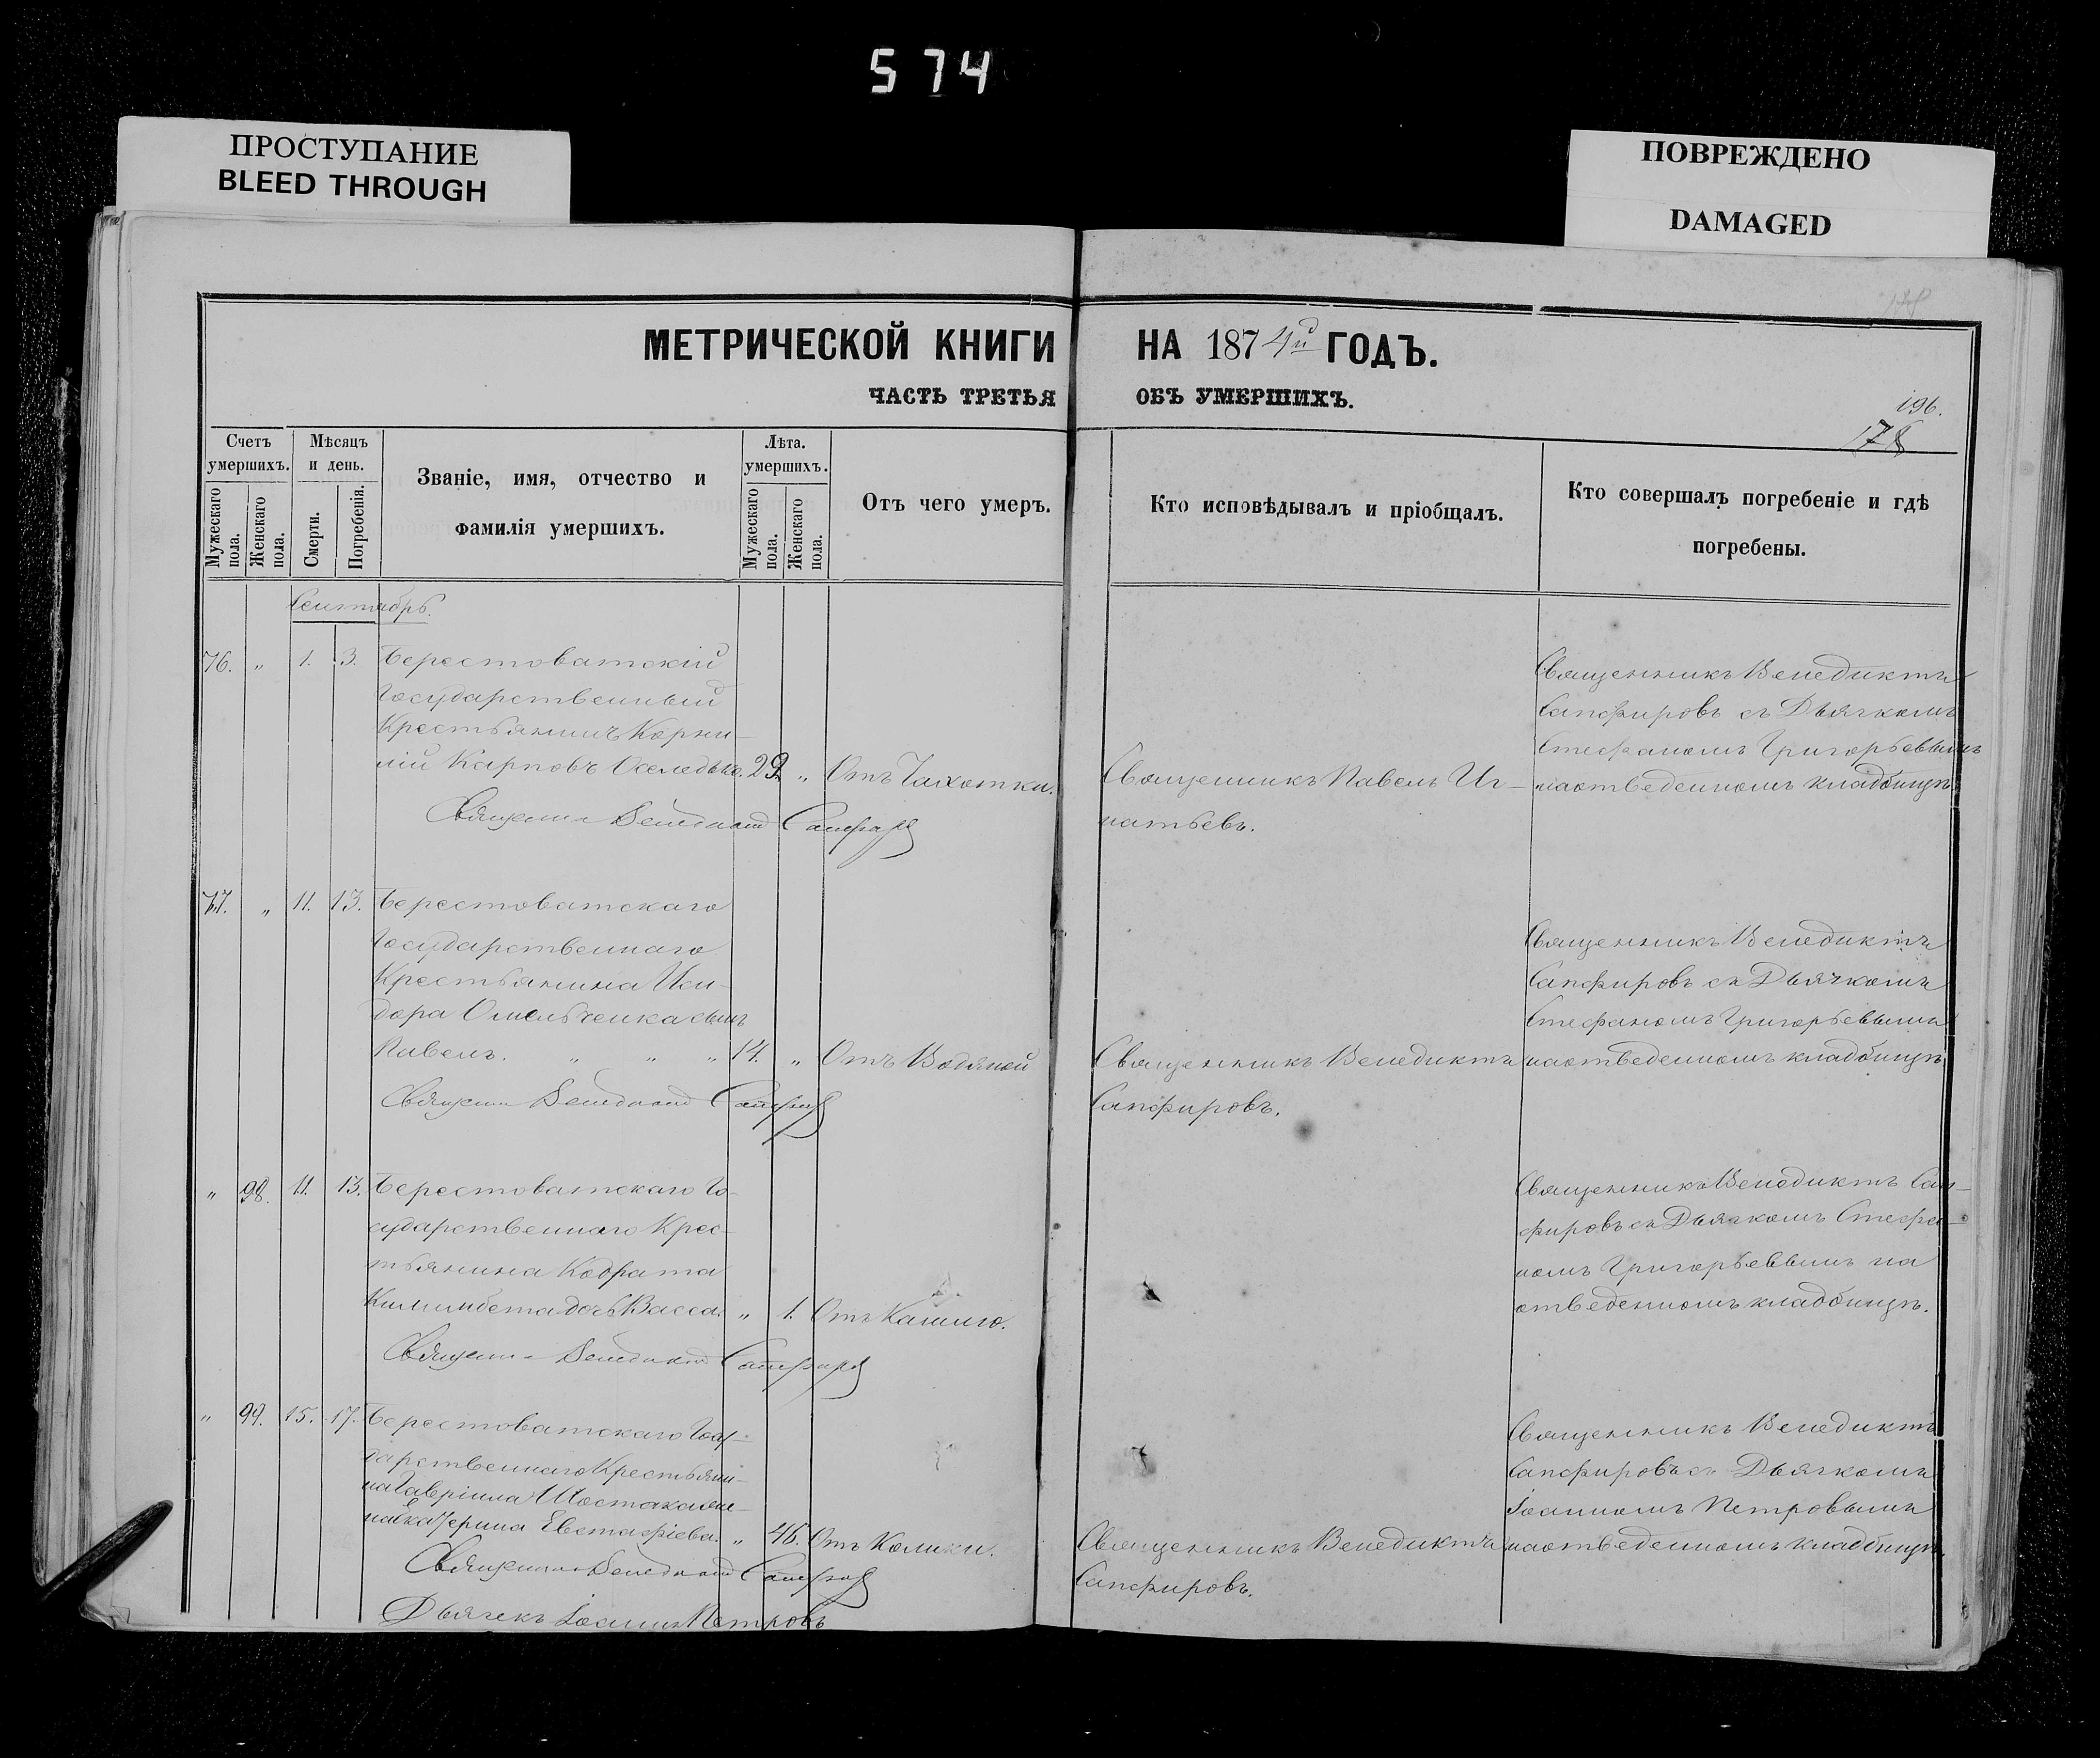 574
ПРОСТУПАНИЕ
BLEED THROUGH
ПОВРЕЖДЕНО
DAMAGED
МЕТРИЧЕСКОЙ КНИГИ НА 1874й ГОДЪ.
ЧАСТЬ ТРЕТЬЯ ОБЪ УМЕРШИХЪ.
196.
178
Счетъ умершихъ.
Мужескаго пола.
Женскаго пола.
Мѣсяцъ и день.
Смерти.
Погребенія.
Званіе, имя, отчество и
фамилія умершихъ.
Лѣта.
умершихъ.
Мужескаго пола.
Женскаго пола.
Отъ чего умеръ.
Кто исповѣдывалъ и пріобщалъ.
Кто совершалъ погребеніе и гдѣ
погребены.
Сентябрь.
76. " 1. 3. Берестоватскій
Государственный
Крестьянинъ Корни-
лій Карповъ Оселедько. 29. " Отъ Чахотки.
Священникъ Павелъ Иг-
натьевъ.
Священникъ Венедиктъ
Сапфировъ съ Дьячкомъ
Стефаномъ Григорьевымъ
на отведенномъ кладбищѣ
Священникъ Венедиктъ Сапфировъ
77. " 11. 13. Берестоватскаго
Государственнаго
Крестьянина Иси-
дора Омельченка сынъ
Павелъ. " " " 14. " Отъ Водяной
Священникъ Венедиктъ
Сапфировъ.
Священникъ Венедиктъ
Сапфировъ съ Дьячкомъ
Стефаномъ Григорьевымъ
на отведенномъ кладбищѣ
Священникъ Венедиктъ Сапфировъ
" 98. 11. 13. Берестоватскаго Го-
сударственнаго Крес-
тьянина Кодрата
дочь Васса. " 1. Отъ Кашлю.
Священникъ Венедиктъ Сап-
фировъ съ Дьячкомъ Стефа-
номъ Григорьевымъ на
отведенномъ кладбищѣ.
Священникъ Венедиктъ Сапфировъ
" 99. 15. 17. Берестоватскаго Госу-
дарственнаго Крестьяни-
на Гавріила Шостака же-
на Екатерина Евстафіева. " 46. Отъ Колики.
Священникъ Венедиктъ
Сапфировъ.
Священникъ Венедиктъ
Сапфировъ съ Дьячкомъ
Іоанномъ Петровымъ
на отведенномъ кладбищѣ.
Священникъ Венедиктъ Сапфировъ
Дьячекъ Іоаннъ Петровъ